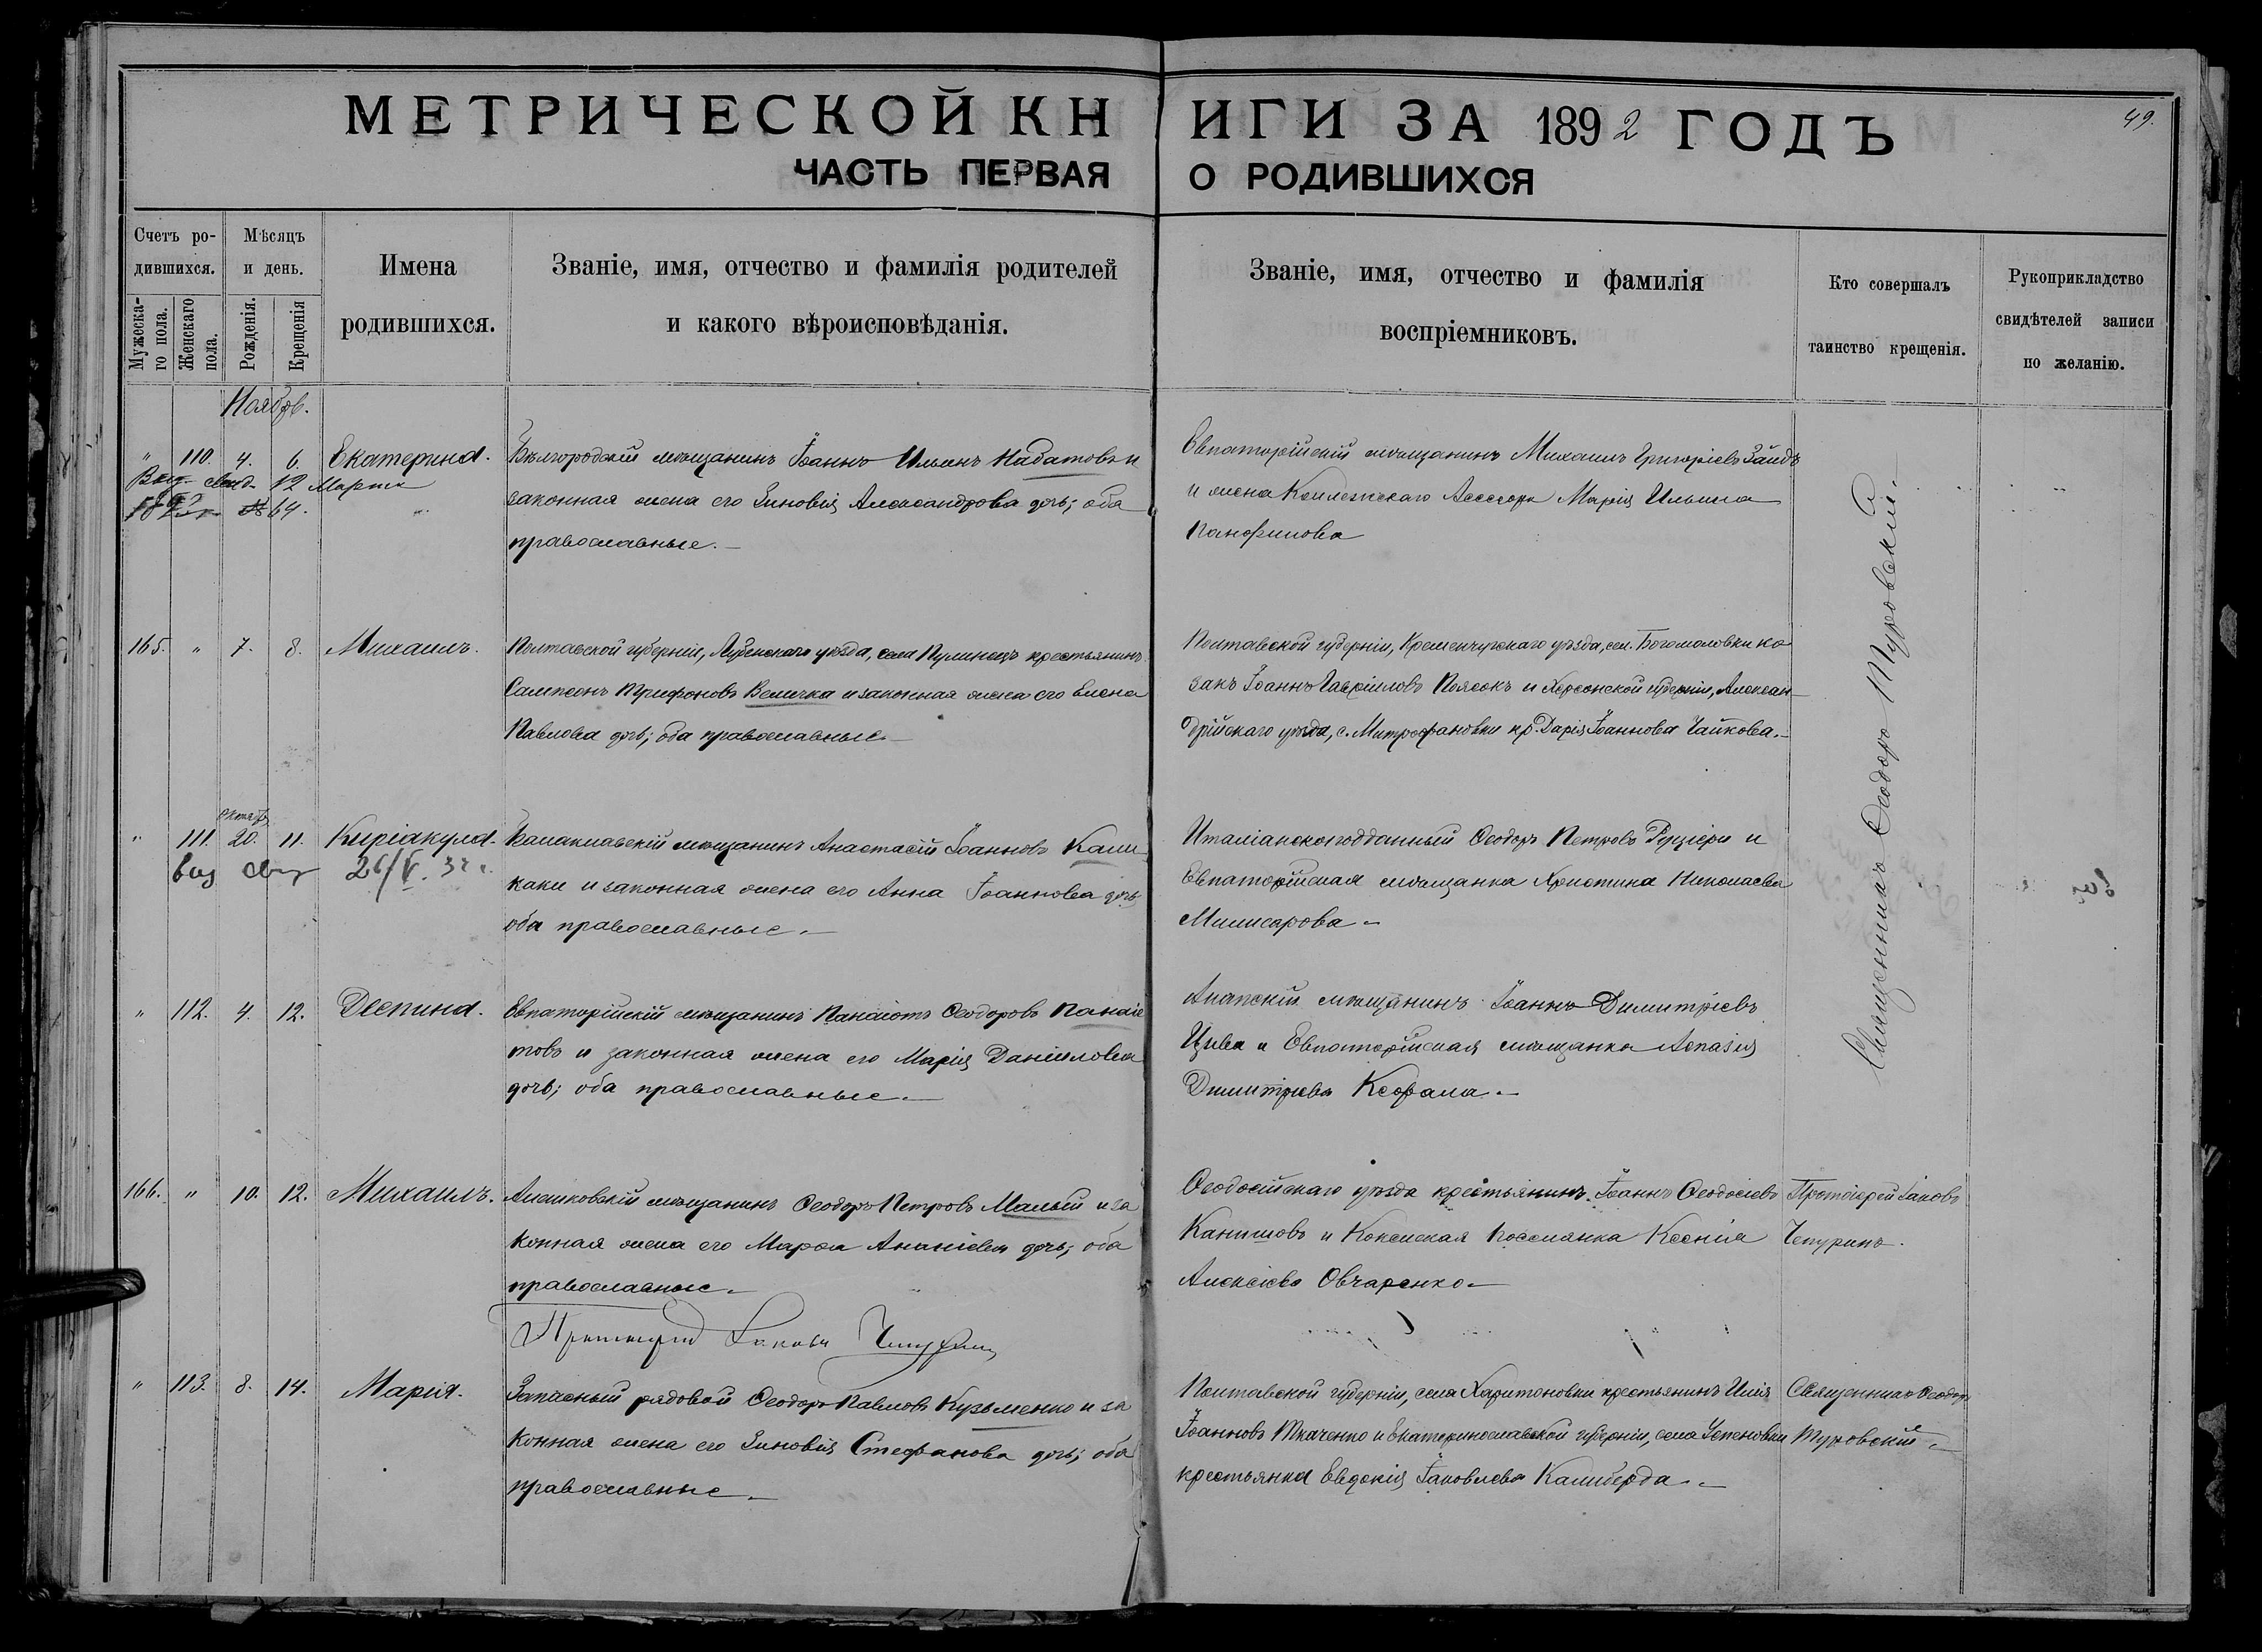 МЕТРИЧЕСКОЙ КНИГИ ЗА 1892 ГОДЪ
49.
ЧАСТЬ ПЕРВАЯ О РОДИВШИХСЯ
Счетъ родившихся.
Мужескаго пола.
Женскаго пола.
Мѣсяцъ и день.
Рожденія.
Крещенія
Имена родившихся.
Званіе, имя, отчество и фамилія родителей и какого вѣроисповѣданія.
Званіе, имя, отчество и фамилія воспріемниковъ.
Кто совершалъ таинство крещенія.
Рукоприкладство свидѣтелей записи по желанію.
Ноябрь.
" 110. 4. 6. Екатерина.
12 Марта
64.
Бѣлгородскій мѣщанинъ Іоаннъ Ильинъ Набатовъ и
законная жена его Зиновія Александрова дочь; оба
православные.
Евпаторійскій мѣщанинъ Михаилъ Григоріевъ Заидъ
и жена Коллежскаго Ассесора Марія Ильина
Панфилова
Священникъ Ѳеодоръ Туровскій.
165. " 7. 8. Михаилъ.
Полтавской губерніи, Лубенскаго уѣзда, села Пулинецъ крестьянинъ
Сампсонъ Трифоновъ Величка и законная жена его Елена
Павлова дочь; оба православные.
Полтавской губерніи, Кременчугскаго уѣзда, сел. Богомоловки ко
закъ Іоаннъ Гавріиловъ Поясокъ и Херсонской губерніи, Алексан
дрійскаго уѣзда, с. Митрофановки кр. Дарія Іоаннова Чайкова.
" 111. октяб. 20. 11. Киріакула.
26/V. 32 г.
Балаклавскій мѣщанинъ Анастасій Іоанновъ Кали
каки и законная жена его Анна Іоаннова дочь
оба православные.
Италіанскоподданный Ѳеодоръ Петровъ Руджіери и
Евпаторійская мѣщанка Христина Николаева
Милисарова
" 112. 4. 12. Деспина.
Евпаторійскій мѣщанинъ Панаіотъ Ѳеодоровъ Панаіо
товъ и законная жена его Марія Даніилова
дочь; оба православные.
Анапскій мѣщанинъ Іоаннъ Димитріевъ
Цива и Евпаторійская мѣщанка Аспазія
Димитріева Кефала.
166. " 10. 12. Михаилъ.
Алешковскій мѣщанинъ Ѳеодоръ Петровъ Малый и за
конная жена его Марѳа Ананіева дочь; оба
православные.
Протоіерей Іаковъ Чепуринъ
Ѳеодосійскаго уѣзда крестьянинъ Іоаннъ Ѳеодосіевъ
Канишовъ и Ксенія
Алексіева Овчаренко
Протоіерей Іаковъ
Чепуринъ.
" 113. 8. 14. Марія.
Запасный рядовой Ѳеодоръ Павловъ Кузьменко и за
конная жена его Зиновія Стефанова дочь; оба
православные.
Полтавской губерніи, села Харитоновки крестьянинъ Илія
Іоанновъ Ткаченко и Екатеринославской губерніи, села Успеновки
крестьянка Евдокія Іаковлева Калиберда.
Священникъ Ѳеодоръ
Туровскій.